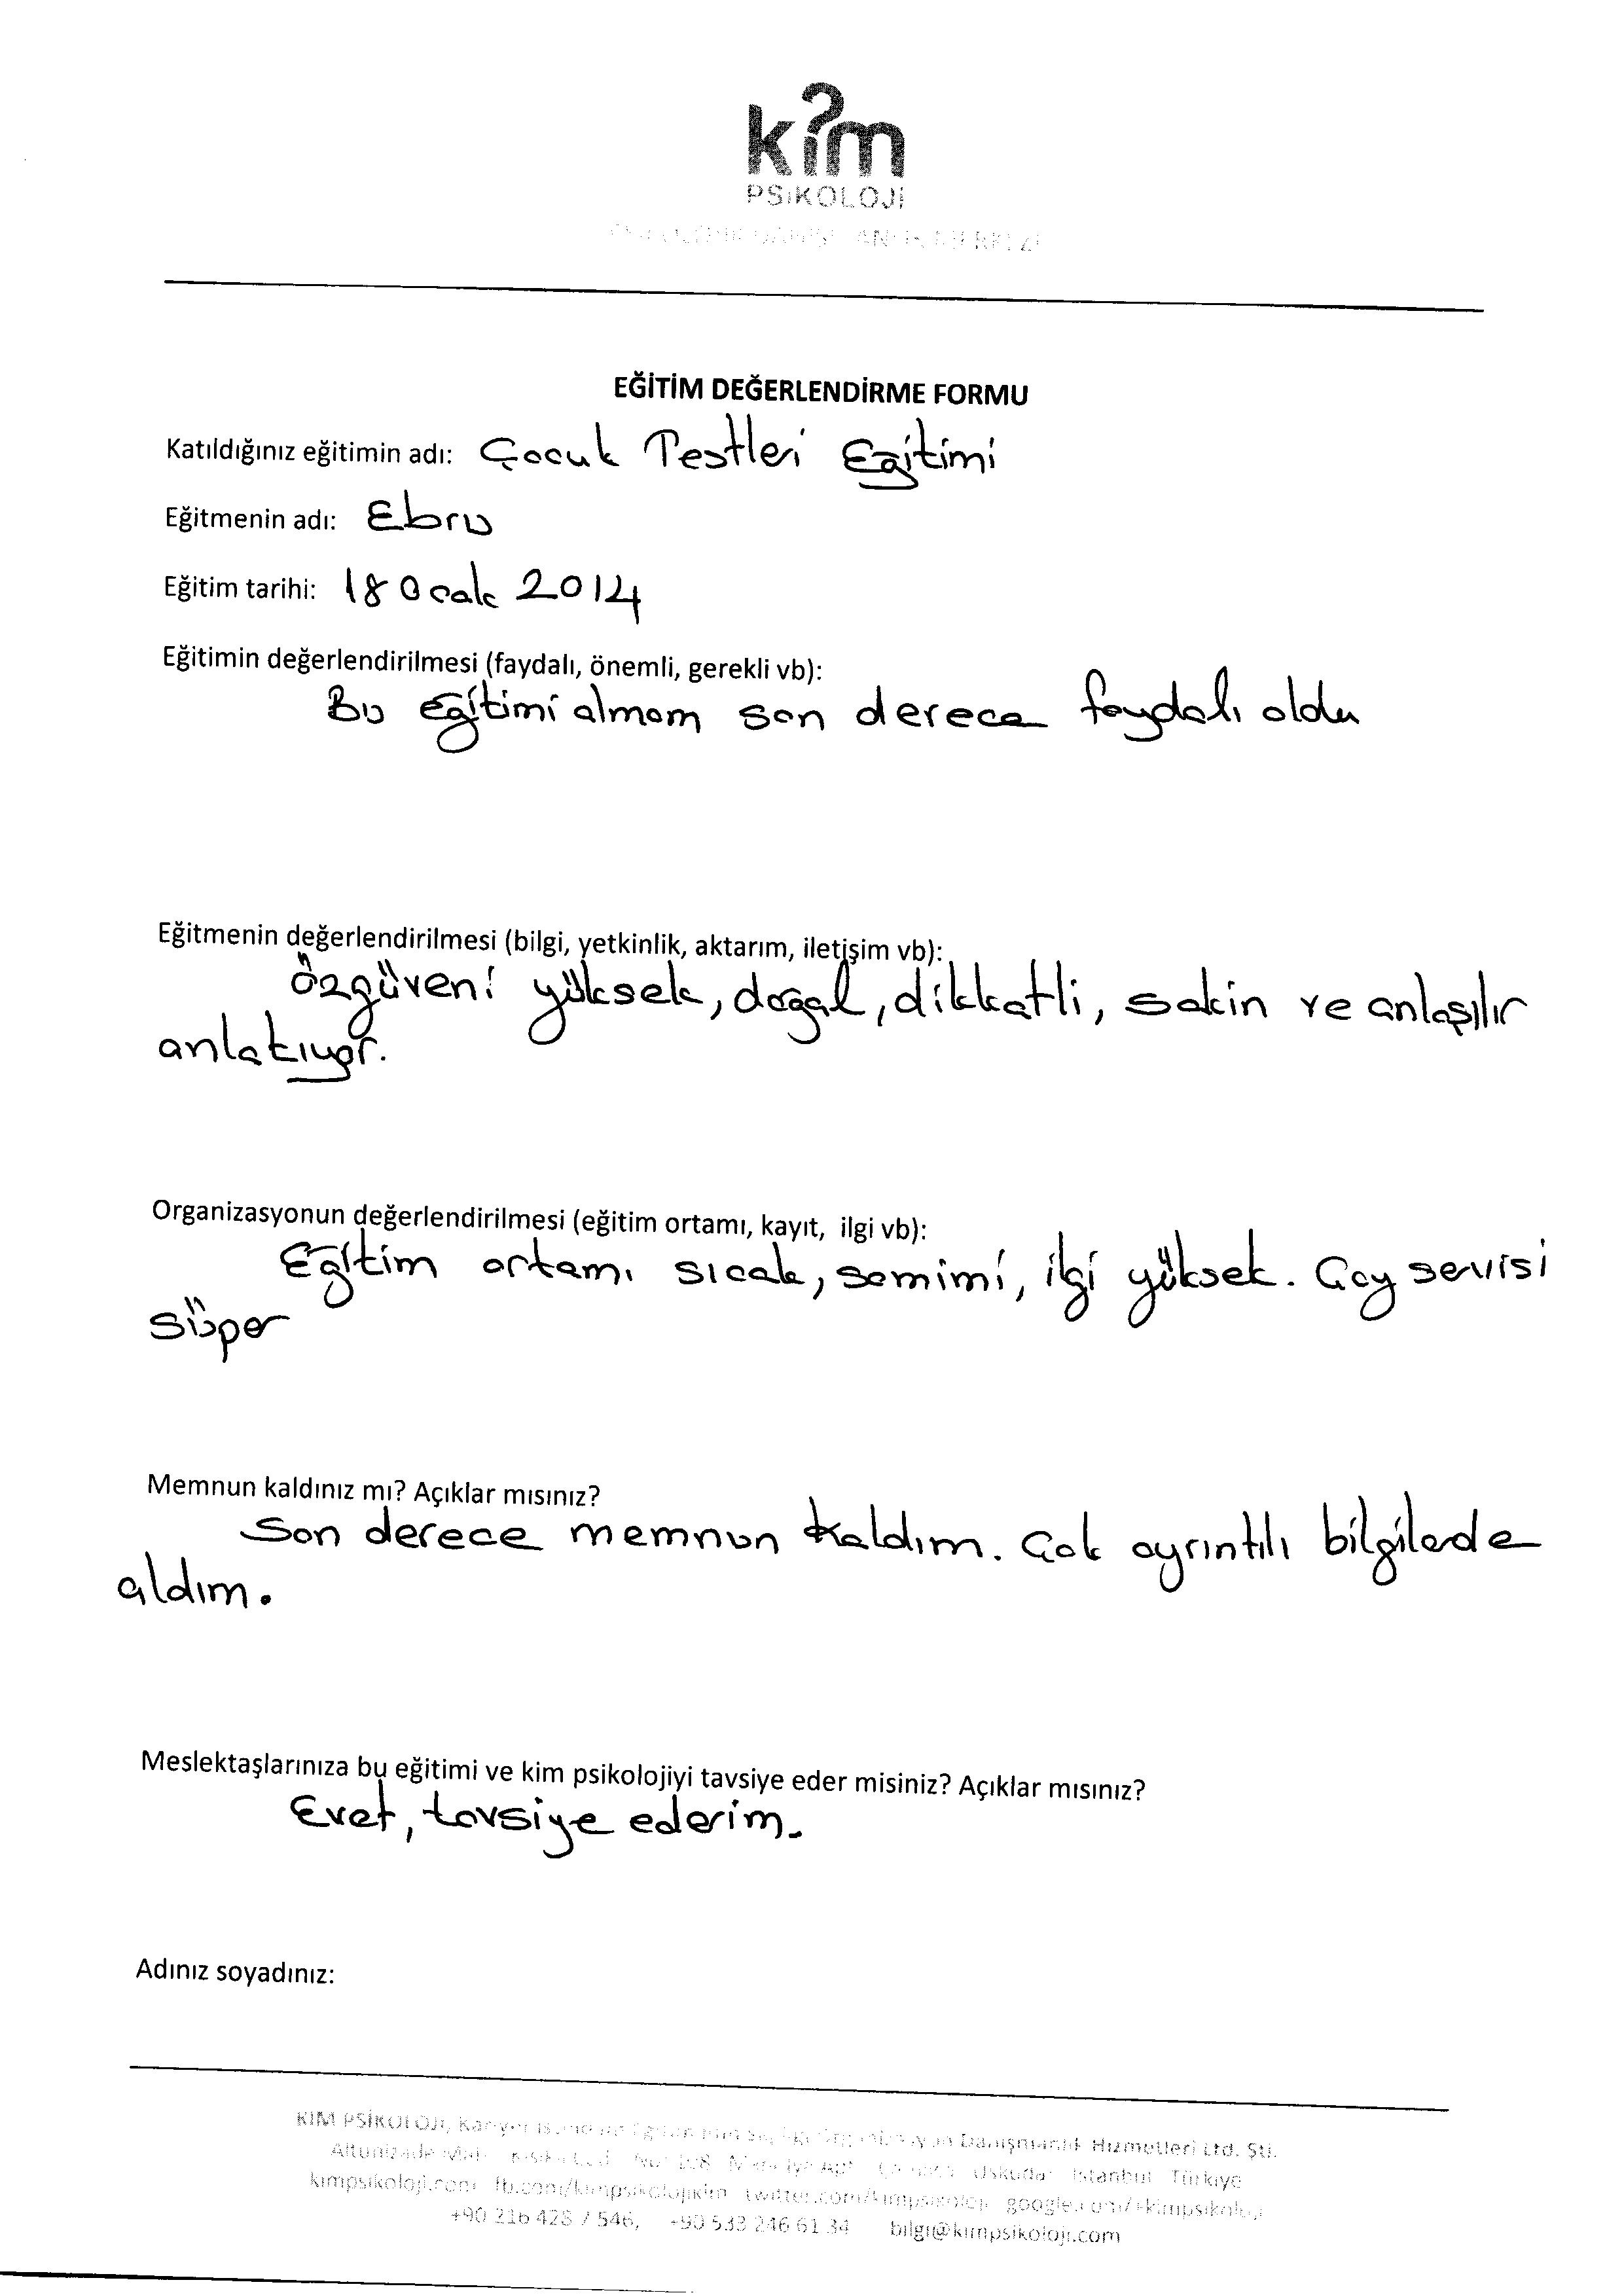 kim
PSiKOLOJi
EĞİTİM DEĞERLENDİRME FORMU
Katıldığınız eğitimin adı: Çocuk Testleri Eğitimi
Eğitmenin adı: Ebru
Eğitim tarihi: 18 Ocak 2014
Eğitimin değerlendirilmesi (faydalı, önemli, gerekli vb):
Bu eğitimi almam son derece faydalı oldu
Eğitmenin değerlendirilmesi (bilgi, yetkinlik, aktarım, iletişim vb):
Özgüveni yüksek, doğal, dikkatli, sakin ve anlaşılır
anlatıyor.
Organizasyonun değerlendirilmesi (eğitim ortamı, kayıt, ilgi vb):
Eğitim ortamı sıcak, samimi, ilgi yüksek. Çay servisi
süper
Memnun kaldınız mı? Açıklar mısınız?
Son derece memnun kaldım. Çok ayrıntılı bilgilerde
aldım.
Meslektaşlarınıza bu eğitimi ve kim psikolojiyi tavsiye eder misiniz? Açıklar mısınız?
Evet, tavsiye ederim.
Adınız soyadınız:
KİM PSİKOLOJİ, Danışmanlık Hizmetleri Ltd. Şti.
Altunizade Üsküdar İstanbul Türkiye
kimpsikoloji.com fb.com/kimpsikolojikim twitter.com/kimpsikoloji google.com/+kimpsikoloji
+90 216 428 7 546, +90 533 246 61 34 bilgi@kimpsikoloji.com